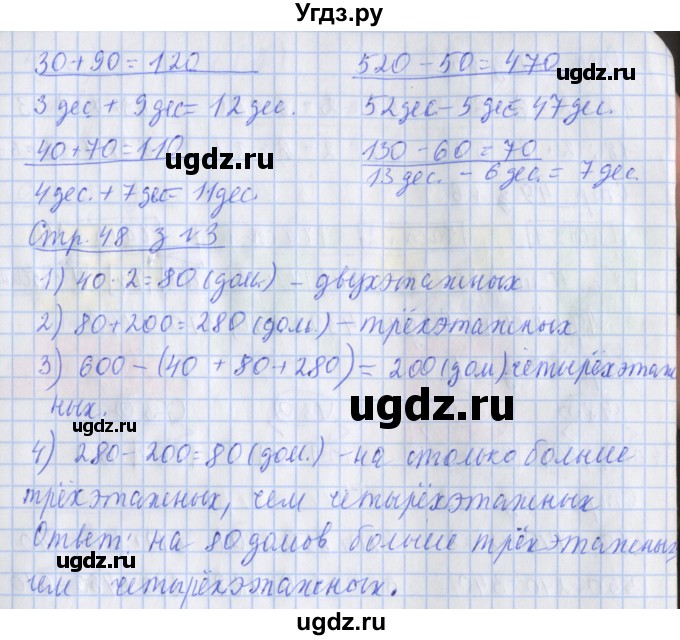 Угдз.ру
30+90=120 520-50=470
ugdz.ru
3 дес + 9 дес= 12 дес. 52дес-5 дес= 47дес.
40+70=110 130-60=70
ugdz.ru
4 дес. + 7 дес= 11дес. 13 дес. - 6 дес. = 7 дес.
Стр. 48 з №3
1) 40·2=80 (дом.) - двухэтажных
2) 80+200=280 (дом.) - трёхэтажных
3) 600-(40+80+280)=200 (дом) четырёхэтаж
ных.
ugdz.ru
4) 280-200=80 (дом.) -на столько больше
трёхэтажных, чем четырёхэтажных
Ответ: на 80 домов больше трёхэтажных,
чем четырёхэтажных.
ugdz.ru ugdz.ru